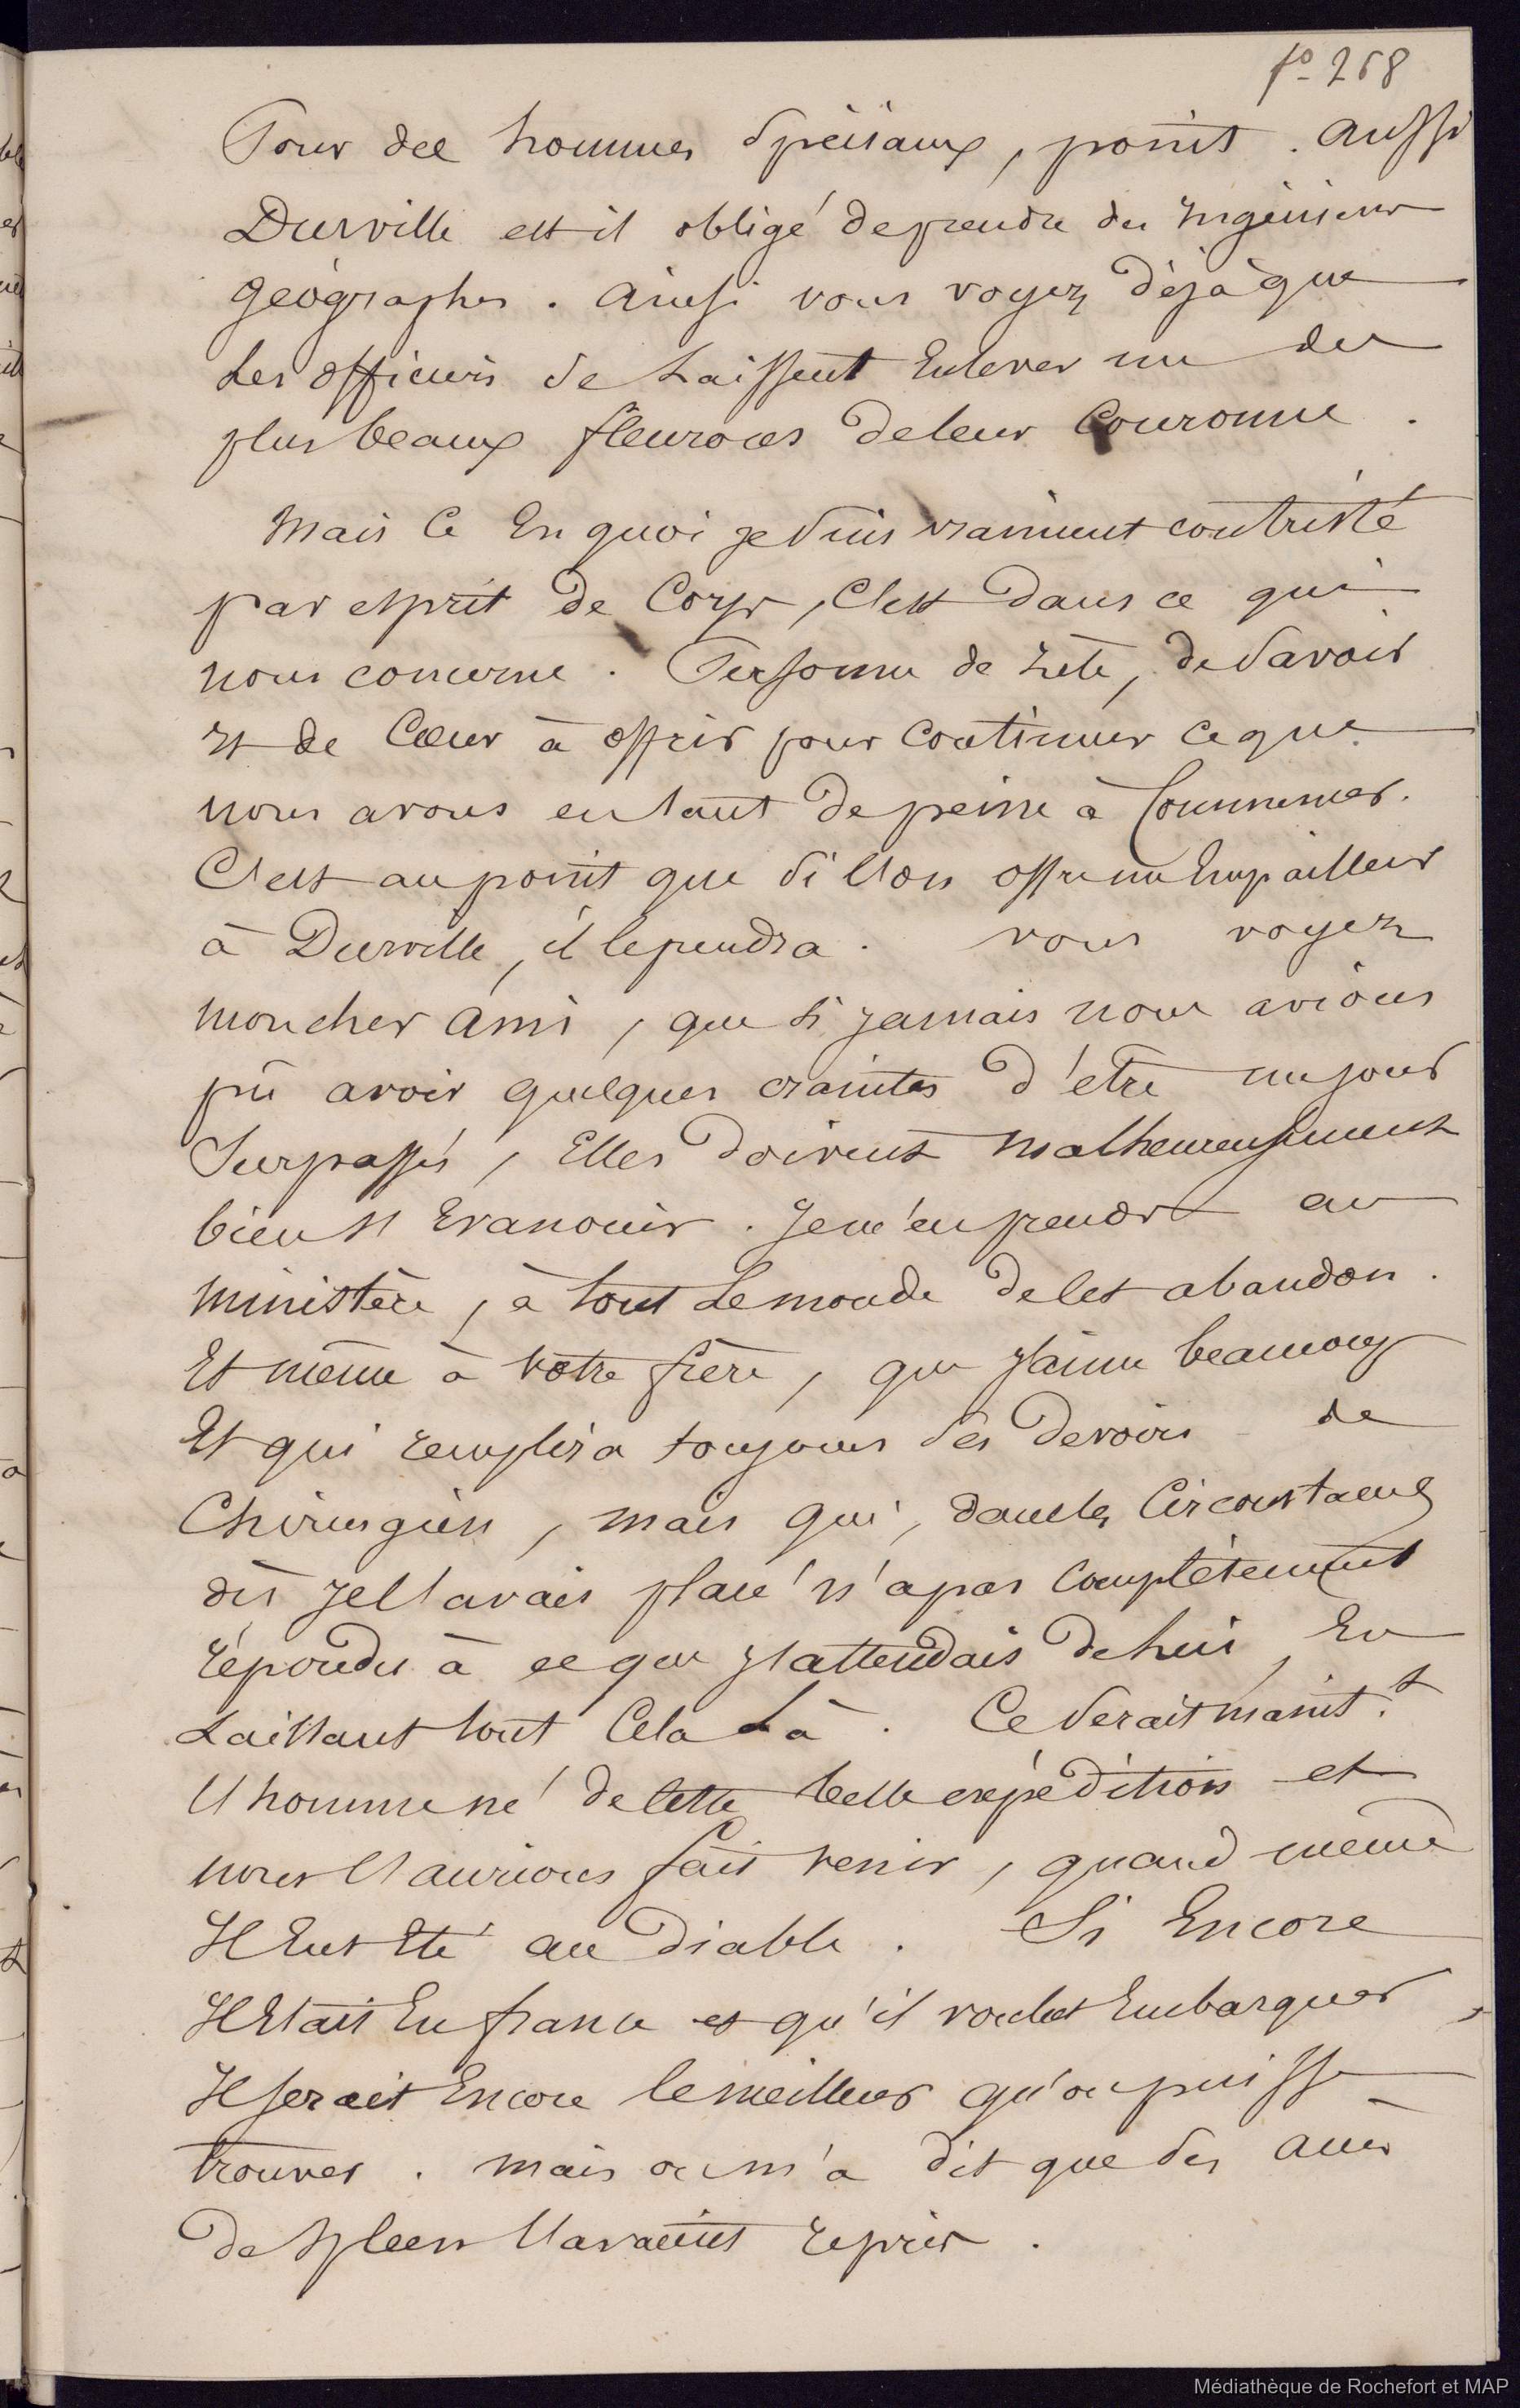 fo 268
Pour des hommes Spéciaux, point. Aussi
Durville est il obligé de prendre des Ingénieurs
géographes. Ainsi vous voyez déjà que
Les officiers se Laissent Enlever un des
plus beaux fleurons de leur Couronne.
Mais Ce En quoi je suis vraiment contristé
par esprit de Corps, C'est dans ce qui
nous concerne. Personne de zélé, de Savoir
Et de Cœur à offrir pour Continuer Ce que
nous avons eu tant de peine à Commencer.
C'est au point que Si l'on offre un Empailleur
à Durville, il le prendra. vous voyez
mon cher Ami, que si jamais nous avions
pû avoir quelques craintes d'être un jour
Surpassés, Elles doivent malheureusement
bien s'Evanouir. Je m'en prends au
ministère, à tout Le monde de cet abandon.
Et même à votre frère, que j'aime beaucoup
Et qui remplira toujours ses Devoirs de
Chirurgien, mais qui, dans les Circonstances
où je l'avais placé n'a pas Complètement
répondu à ce que j'attendais de lui, En
Laissant tout Cela Là. Ce Serait maint.t
l'homme né de cette belle expédition et
nous l'aurions fait venir, quand même
Il Eut Eté au Diable. Si Encore
Il Etait En france et qu'il voulut Embarquer,
Il serait Encore le meilleur qu'on puisse
trouver. Mais on m'a dit que des accès
de Spleen l'avaient repris.
Médiathèque de Rochefort et MAP